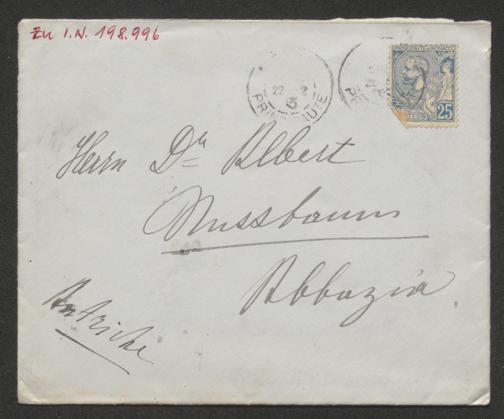 Zu I.N. 198.996
22 - 2
3
25
Herrn Dr. Albert
Nussbaum
Abbazia
Autriche